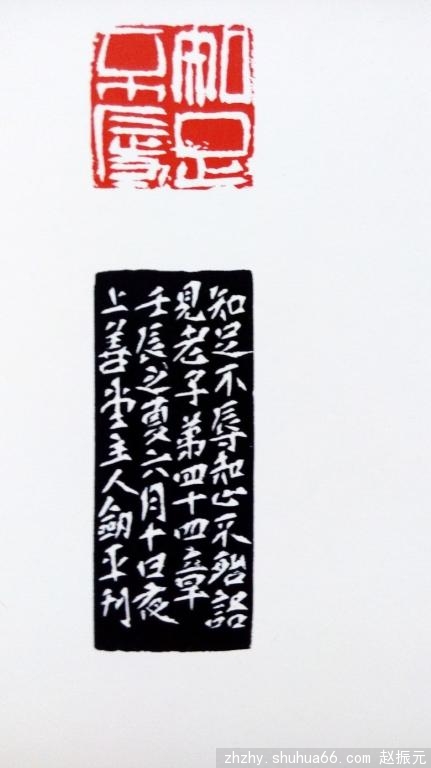 知足
不辱
知足不辱知止不殆語
見老子第四十四章
壬辰之夏六月十日夜
上善堂主人劍平刊
zhzhy.shuhua66.com 赵振元